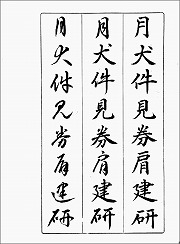 月犬件見券肩建研
月犬件見券肩建研
月犬件見券肩建研